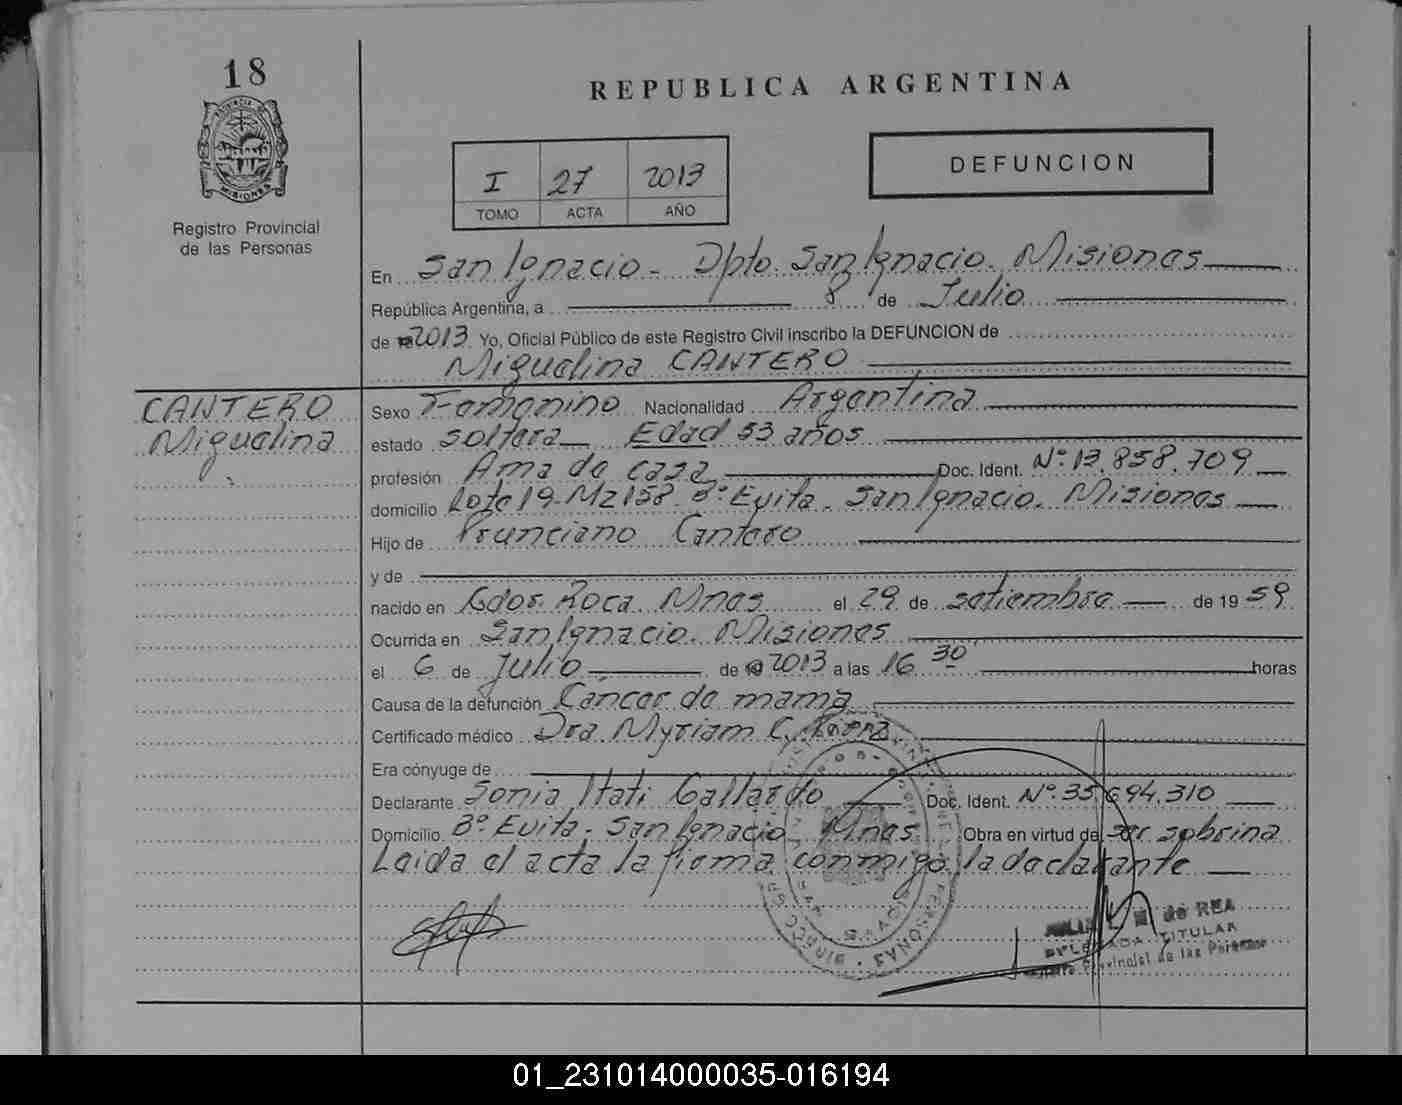 18
REPUBLICA ARGENTINA
PROVINCIA DE
MISIONES
Registro Provincial
de las Personas
I 27 2013
TOMO ACTA AÑO
DEFUNCION
En San Ignacio - Dpto. San Ignacio. Misiones
República Argentina, a 8 de Julio
de 2013 Yo, Oficial Público de este Registro Civil inscribo la DEFUNCION de
Miguelina CANTERO
CANTERO
Miguelina
Sexo Femenino Nacionalidad Argentina
estado soltera Edad 53 años
profesión Ama de casa Doc. Ident. Nº 13.858.709
domicilio Lote 19 - Mz 158. Bº Evita - San Ignacio. Misiones
Hijo de Prunciano Cantero
y de
nacido en Gdor. Roca. Mnes el 29 de setiembre de 19 59
Ocurrida en San Ignacio. Misiones
el 6 de Julio de 2013 a las 16 30 horas
Causa de la defunción Cáncer de mama
Certificado médico Dra. Myriam C.
Era cónyuge de
Declarante Sonia Itati Gallardo Doc. Ident. Nº 35.694.310
Domicilio Bº Evita - San Ignacio Mnes Obra en virtud de ser sobrina
Leida el acta la firma conmigo la declarante
de REA
DELEGADA TITULAR
Provincial de las Personas
01_231014000035-016194